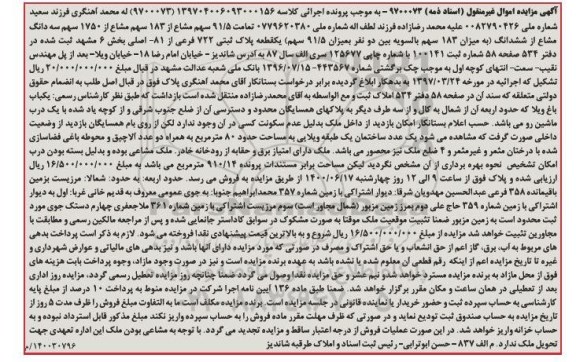 آگهی مزایده اموال غیرمنقول (اسناد ذمه) ۹۷۰۰۰۷۳- به موجب پرونده اجرائی کلاسه ۱۳۹۷۰۴۰۰۶۰۹۳۰۰۰۱۵۶ (۹۷۰۰۰۷۳) له محمد آهنگری فرزند سعید
شماره ملی ۰۰۸۲۷۹۰۴۲۶ علیه محمد رضازاده فرزند لطف اله شماره ملی ۰۷۷۹۶۲۰۳۸۰ تمامت ۹۱/۵ سهم مشاع از ۱۸۳ سهم مشاع از ۱۷۵۰ سهم سه دانگ
مشاع از ششدانگ (به میزان ۱۸۳ سهم بالسویه بین دو نفر بعیزان ۹۱/۵ سهم) یکقطعه پلاک ثبتی ۷۲۲ فرعی از ۸۱- اصلی بخش ۶ مشهد ثبت شده در
دفتر ۵۳۴ صفحه ۵۸ شماره ثبت ۱۰۰۱۴۱ با شماره چاپی ۱۲۵۶۷۷ سری الف سال ۸۷ به آدرس شاندیز - خیابان امام رضا ۱۸- خیابان ویلا- بعد از پل مهندس
نقیبی- سمت- انتهای کوچه اول به موجب چک شماره ۴۴۲۵۶۷- ۱۳۹۶/۰۷/۱۵ بانک ملی شعبه عدالت مشهد در قبال مبلغ ۲۰/۰۰۰/۰۰۰/۰۰۰ ریال
تشکیل که اجرائیه در مورخه ۱۳۹۷/۰۳/۲۴ به بدهکار ابلاغ گردیده برابر درخواست بستانکار آقای محمد آهنگری پلاک فوق در قبال اصل طلب به انضمام حقوق
دولتی متعلقه که سند آن در صفحه ۵۸ دفتر ۵۳۴ املاک ثبت و مع الواسطه به آقای محمدرضازاده منتقل شده است بازداشت که طبق نظر کارشناس رسمی: یکباب
باغ ویلا که حدود اربعه آن از شمال به کال و از سه طرف دیگر به پلاکهای همسایگان محدود و دسترسی آن از ضلع جنوب شرقی و از کوچه یاد شده با یک درب
ماشین رو می باشد. حسب اعلام بستانکار امکان بازدید از داخل ملک بدلیل عدم سکونت کسی در آن وجود ندارد لکن از روی بام همسایگان بازدید از وضعیت
داخلی صورت گرفت که مشاهده می شود یک عدد ساختمان یک طبقه ویلایی به مساحت حدود ۸۰ مترمربع به همراه دو عدد آلاچیق و محوطه باغی فضاسازی
شده با درختان مثمر و غیرمثمر و ۴ ضلع ملک نیز محصور می باشد. ملک دارای امتیاز برق و حقابه از رودخانه جاغرد. ملک مشاعی بوده و بدلیل بسته بودن درب
امکان تشخیص نحوه بهره برداری از آن مشخص نگردید لیکن مساحت برابر مستندات پرونده ۹۱۰/۱۴ مترمربع می باشد. به مبلغ ۱۶/۵۰۰/۰۰۰/۰۰۰ ریال
ارزیابی شده و پلاک فوق از ساعت ۹ الی ۱۲ روز چهارشنبه ۱۴۰۰/۰۶/۱۷ از طریق مزایده به فروش می رسد. حدود اربعه: به حدود: شمالا: مرزیست بزمین
باقیمانده ۳۵۸ فرعی عبدالحسین مهدویان شرقا: دیوار اشتراکی با زمین شماره ۳۵۷ محمدابراهیم جنوبا: به جوی عمومی معروف به قدیم خانی غربا: اول به دیوار
اشتراکی با زمین شماره ۳۵۹ حاج علی دوم مرزیست بزمین مزبور (شمال مجاور است) سوم مرزیست اشتراکی با زمین شماره ۳۶۱ ملاجعفری چهارم دستک جوی مورد
ثبت محدود است به زمین مزبور ضمنا تثبیت موقعیت ملک موقتا به صورت مشکوک در سوابق کاداستر جانمائی شده و پس از مراجعه مالکین رسمی و مطابقت با
مجاورین تثبیت خواهد شد مزایده از مبلغ ۱۶/۵۰۰/۰۰۰/۰۰۰ ریال شروع و به بالاترین قیمت پیشنهادی نقدا فروخته می شود. لازم به ذکر است پرداخت بدهی
های مربوط به آب، برق، گاز اعم از حق انشعاب و یا حق اشتراک و مصرف در صورتی که مورد مزایده دارای آنها باشد و نیز بدهی های مالیاتی و عوارض شهرداری و
غیره تا تاریخ مزایده اعم از اینکه رقم قطعی آن معلوم شده یا نشده باشد به عهده برنده مزایده است و نیز در صورت وجود مازاد، وجوه پرداختی بابت هزینه های
فوق از محل مازاد به برنده مزایده مسترد خواهد شد و نیم عشر و حق مزایده نقدا وصول می گردد ضمنا چنانچه روز مزایده تعطیل رسمی گردد، مزایده روز اداری
بعد از تعطیلی در همان ساعت و مکان مقرر برگزار خواهد شد. ضمنا طبق ماده ۱۳۶ آیین نامه اجرا شرکت در مزایده منوط به پرداخت ۱۰ درصد از مبلغ پایه
کارشناسی به حساب سپرده ثبت و حضور خریدار یا نماینده قانونی او در جلسه مزایده است. برنده مزایده مکلف است مابه التفاوت مبلغ فروش را ظرف مدت ۵ روز از
تاریخ مزایده به حساب صندوق ثبت تودیع نماید و در صورتی که ظرف مهلت مقرر مانده فروش را به حساب سپرده واریز نکند مبلغ مذکور قابل استرداد نبوده و به
حساب خزانه واریز خواهد شد. در این صورت عملیات فروش از درجه اعتبار ساقط و مزایده تجدید می گردد. با توجه به مشاعی بودن ملک این اداره تعهدی جهت
تحویل ملک ندارد. م الف ۸۳۷ - حسن ابوترابی- رئیس ثبت اسناد و املاک طرقبه شاندیز
۱۴۰۰۳۰۷۹۶/م